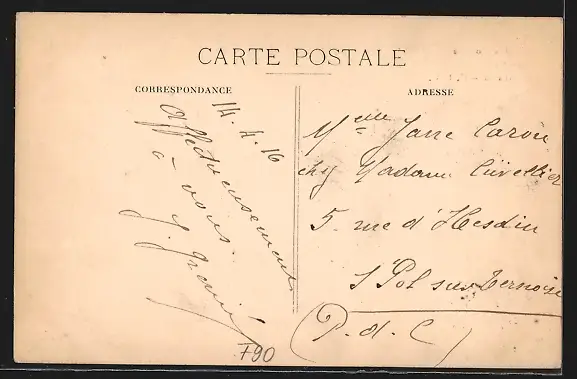 CARTE POSTALE
CORRESPONDANCE
ADRESSE
14.4.16
Affectueusement
à vous.
Melle Jane Caron
chez Madame Cuvellier
5. rue d'Hesdin
St Pol sur Ternoise
(P. d. C)
F90